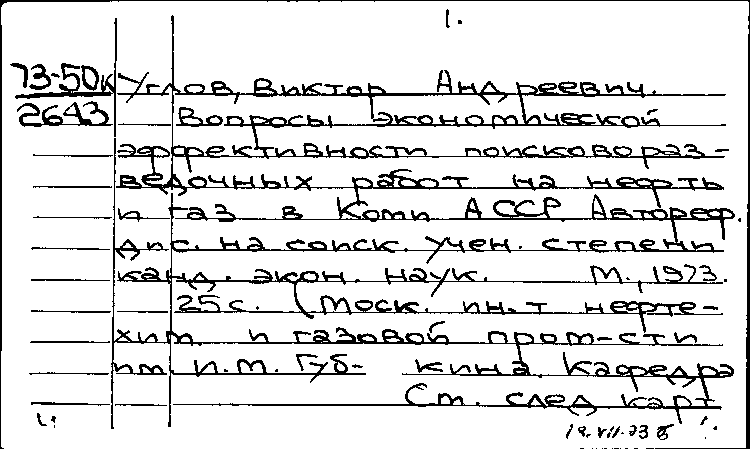 1.
73-50к Углов, Виктор Андреевич.
2643 Вопросы экономической
эффективности поисковораз-
ведочных работ на нефть
и газ в Коми АССР. Автореф.
дис. на соиск. учен. степени
канд. экон. наук. М., 1973.
25 с. (Моск. ин-т нефте-
хим. и газовой пром-сти
им. И.М. Губ- кина. Кафедра
См. след карт